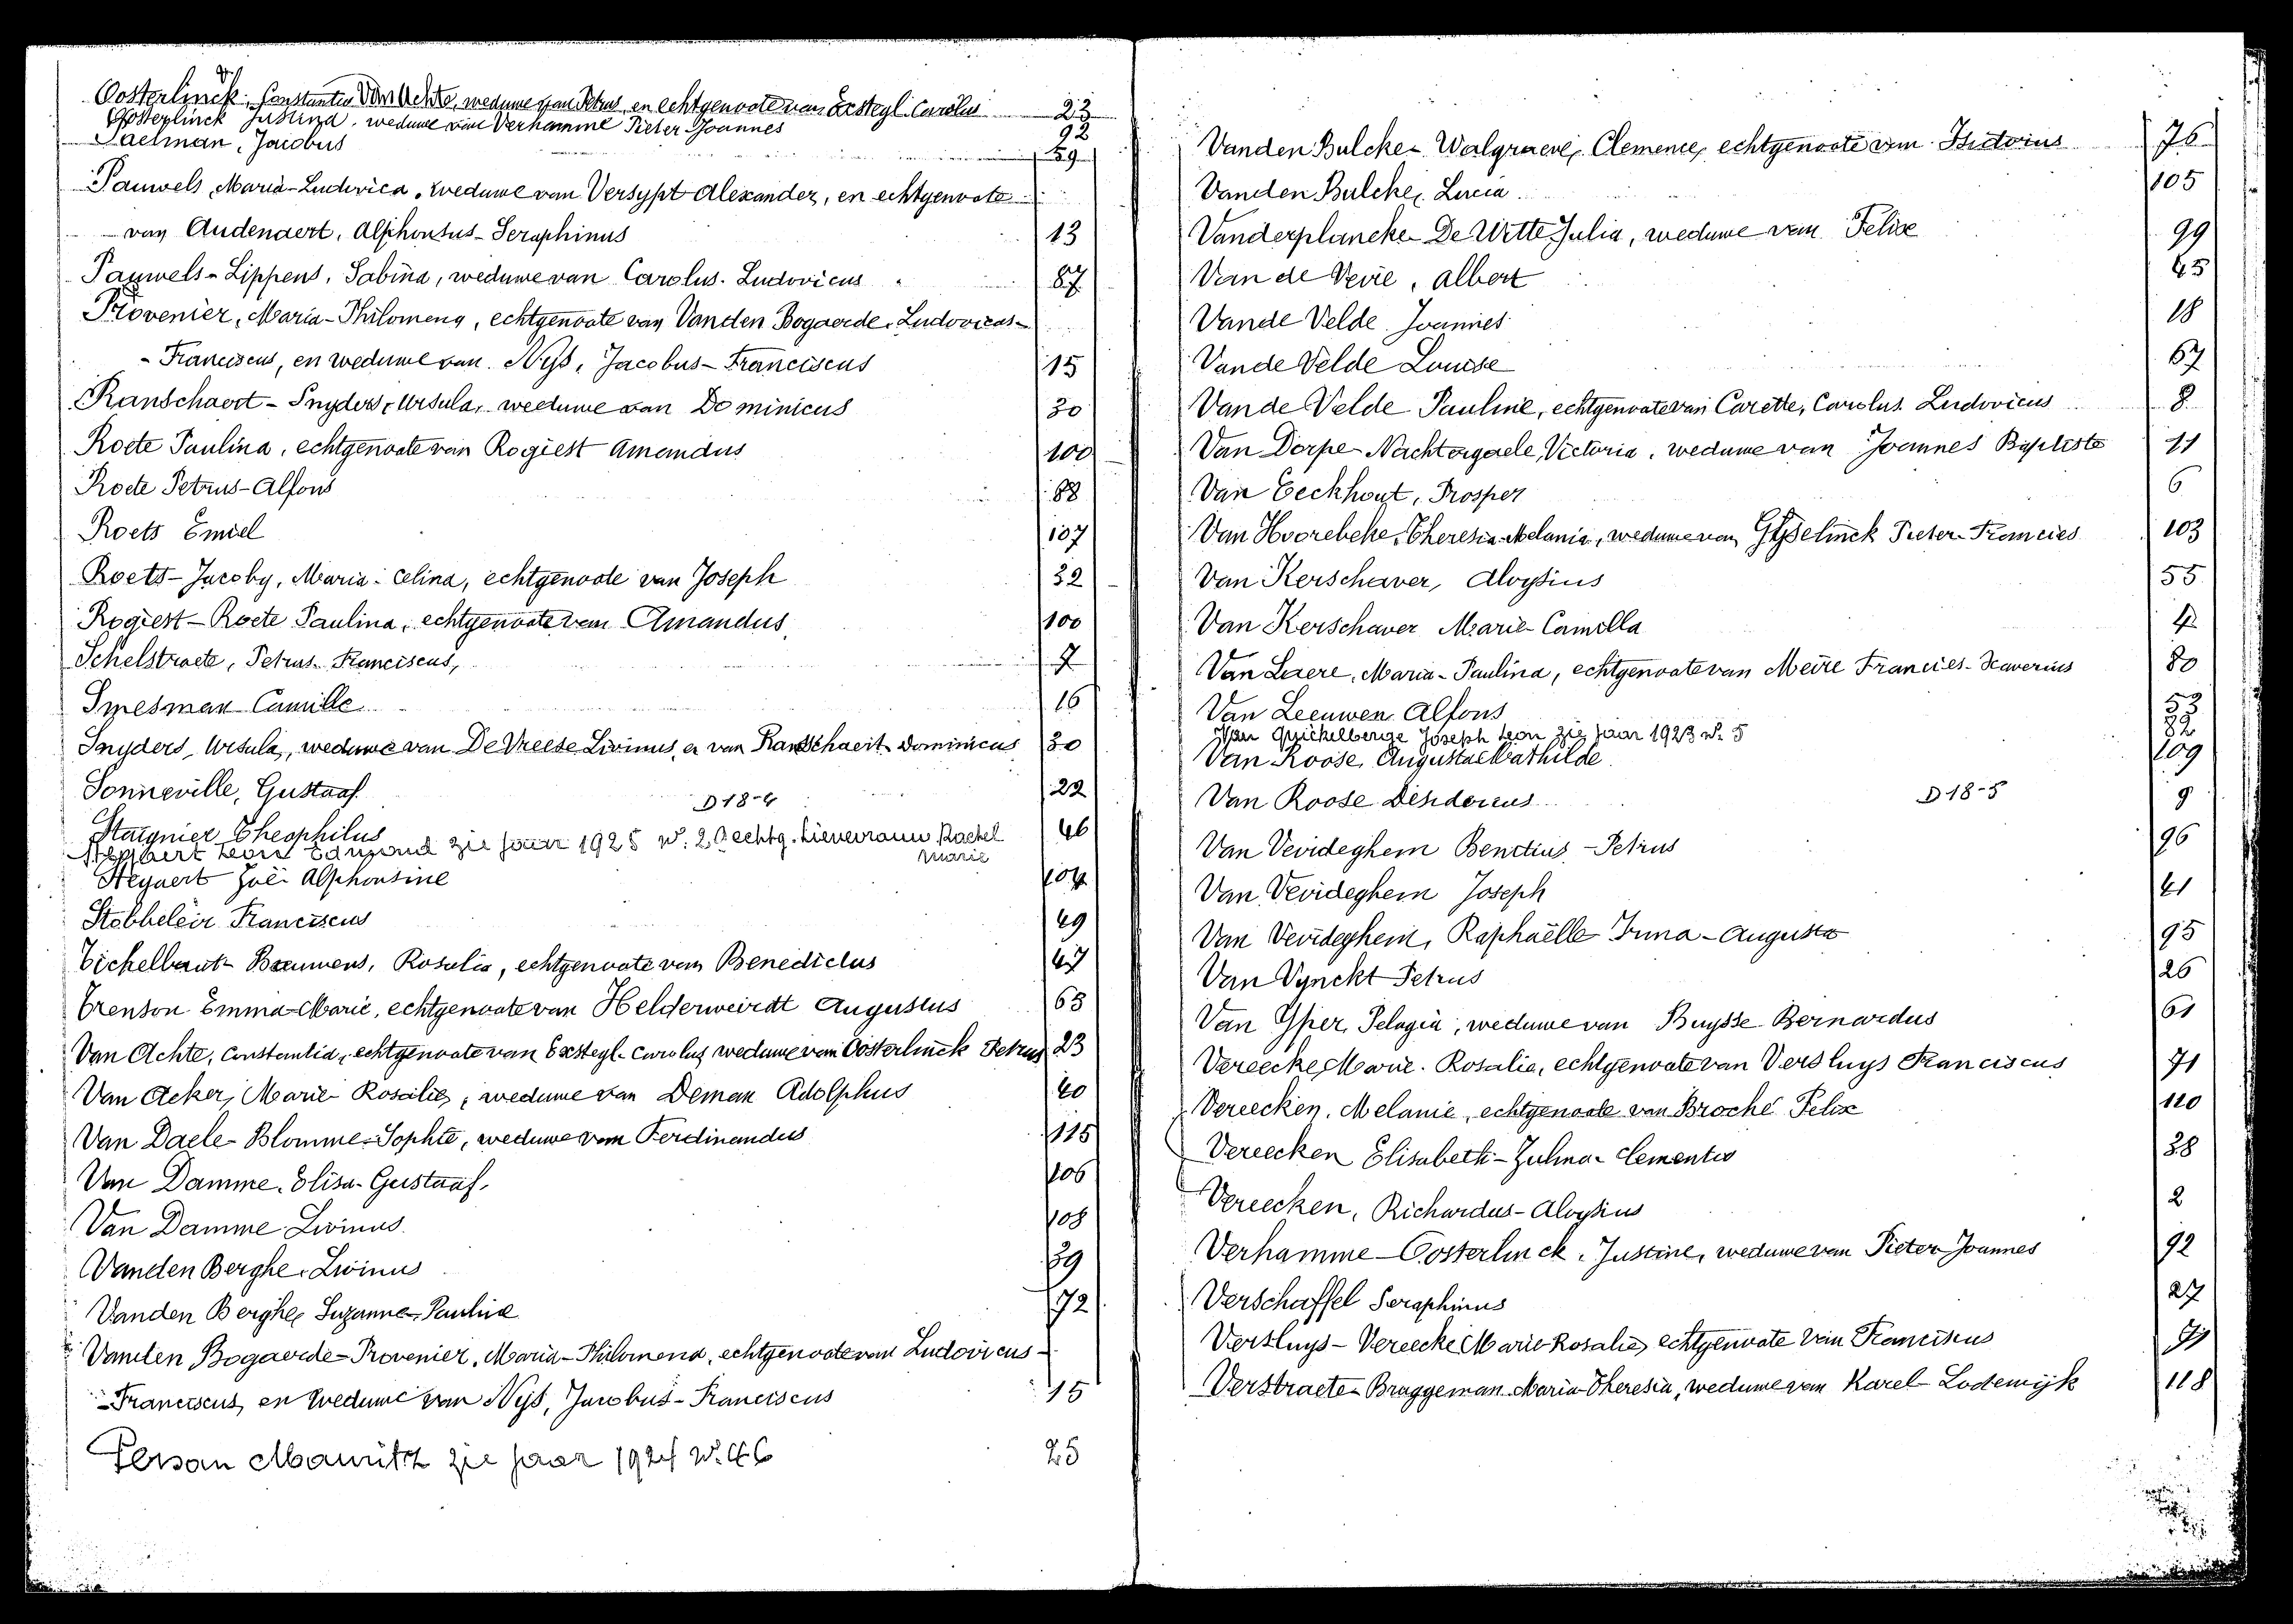 Oosterlinck, Constantia Van Achte, weduwe van Petrus, en echtgenoote van Exsteyl Carolus 23
Oosterlinck Justina, weduwe van Verhamme Pieter Joannes 92
Paelman, Jacobus 59
Pauwels, Maria-Ludovica, weduwe van Versypt Alexander, en echtgenoote
- van Audenaert, Alphonsus-Seraphinus 13
Pauwels-Lippens, Sabina, weduwe van Carolus-Ludovicus 87
Provenier, Maria-Philomena, echtgenoote van Vanden Bogaerde, Ludovicus-
- Franciscus, en weduwe van Nijs, Jacobus-Franciscus 15
Ranschaert-Snyders, Ursula, weduwe van Dominicus 30
Roete Paulina, echtgenoote van Rogiest Amandus 100
Roete Petrus-Alfons 88
Roets Emiel 107
Roets-Jacoby, Maria-Celina, echtgenoote van Joseph 32
Rogiest-Roete Paulina, echtgenoote van Amandus 100
Schelstraete, Petrus-Franciscus, 7
Smesman Camille 16
Snyders, Ursula, weduwe van De Vreese Livinus, en van Ranschaert Dominicus 30
Sonneville, Gustaaf 22
D 18-4
Staignier Theophilus 46
Steyaert Leon Edmond zie jaar 1925 echtg. Lievevrauw Rachel
Marie
Steyaert Zoë Alphonsine 104
Stobbeleir Franciscus 49
Tichelbaut-Bauwens, Rosalia, echtgenoote van Benedictus 47
Trenson Emma-Marie, echtgenoote van Helderweirdt Augustus 63
Van Achte, Constantia, echtgenoote van Exsteyl-Carolus weduwe van Oosterlinck Petrus 23
Van Acker, Marie Rosalie, weduwe van Deman Adolphus 40
Van Daele-Blomme-Sophie, weduwe van Ferdinandus 115
Van Damme, Elisa-Gustaaf. 106
Van Damme Livinus 108
Vanden Berghe, Livinus 39
Vanden Berghe Suzanne-Paulina 72
Vanden Bogaerde-Provenier, Maria-Philomena, echtgenoote van Ludovicus-
-Franciscus, en weduwe van Nijs, Jacobus-Franciscus 15
Persan Mauritz zie jaar 1924 25
Vanden Bulcke-Walgraeve, Clemence, echtgenoote van Isidorius 76
Vanden Bulcke, Lucia 105
Vanderplancke-De Witte Julia, weduwe van Felix 99
Van de Veire, Albert 45
Vande Velde Joannes 18
Vande Velde Louise 67
Vande Velde Pauline, echtgenoote van Carette, Carolus Ludovicus 8
Van Dorpe-Nachtergaele, Victoria, weduwe van Joannes Baptiste 11
Van Eeckhout, Prosper 6
Van Hoorebeke, Theresia-Melania, weduwe van Gyselinck Pieter-Francies 103
Van Kerschaver, Aloysius 55
Van Kerschaver Marie-Camilla 4
Van Laere, Maria-Paulina, echtgenoote van Meire Francies-Xaverius 80
Van Leeuwen Alfons 53
Van Quickelberge Joseph Leon zie jaar 1923 n. 5 82
Van Roose, Augusta Mathilde 109
Van Roose Desiderius D 18-5 9
Van Vevideghem Benetius-Petrus 96
Van Vevideghem Joseph 41
Van Vevideghem, Raphaëlle Irma-Augusta 95
Van Vynckt Petrus 26
Van Yper, Pelagia, weduwe van Buysse Bernardus 61
Vereecke, Marie-Rosalia, echtgenoote van Versluys Franciscus 71
Vereecken, Melanie, echtgenoote van Broché Felix 110
Vereecken Elisabeth-Zulma-Clementia 38
Vereecken, Richardus-Aloysius 2
Verhamme-Oosterlinck, Justine, weduwe van Pieter Joannes 92
Verschaffel Seraphinus 27
Versluys-Vereecke Marie Rosalie, echtgenoote van Franciscus 71
Verstraete-Bruggeman Maria-Theresia, weduwe van Karel-Lodewijk 118